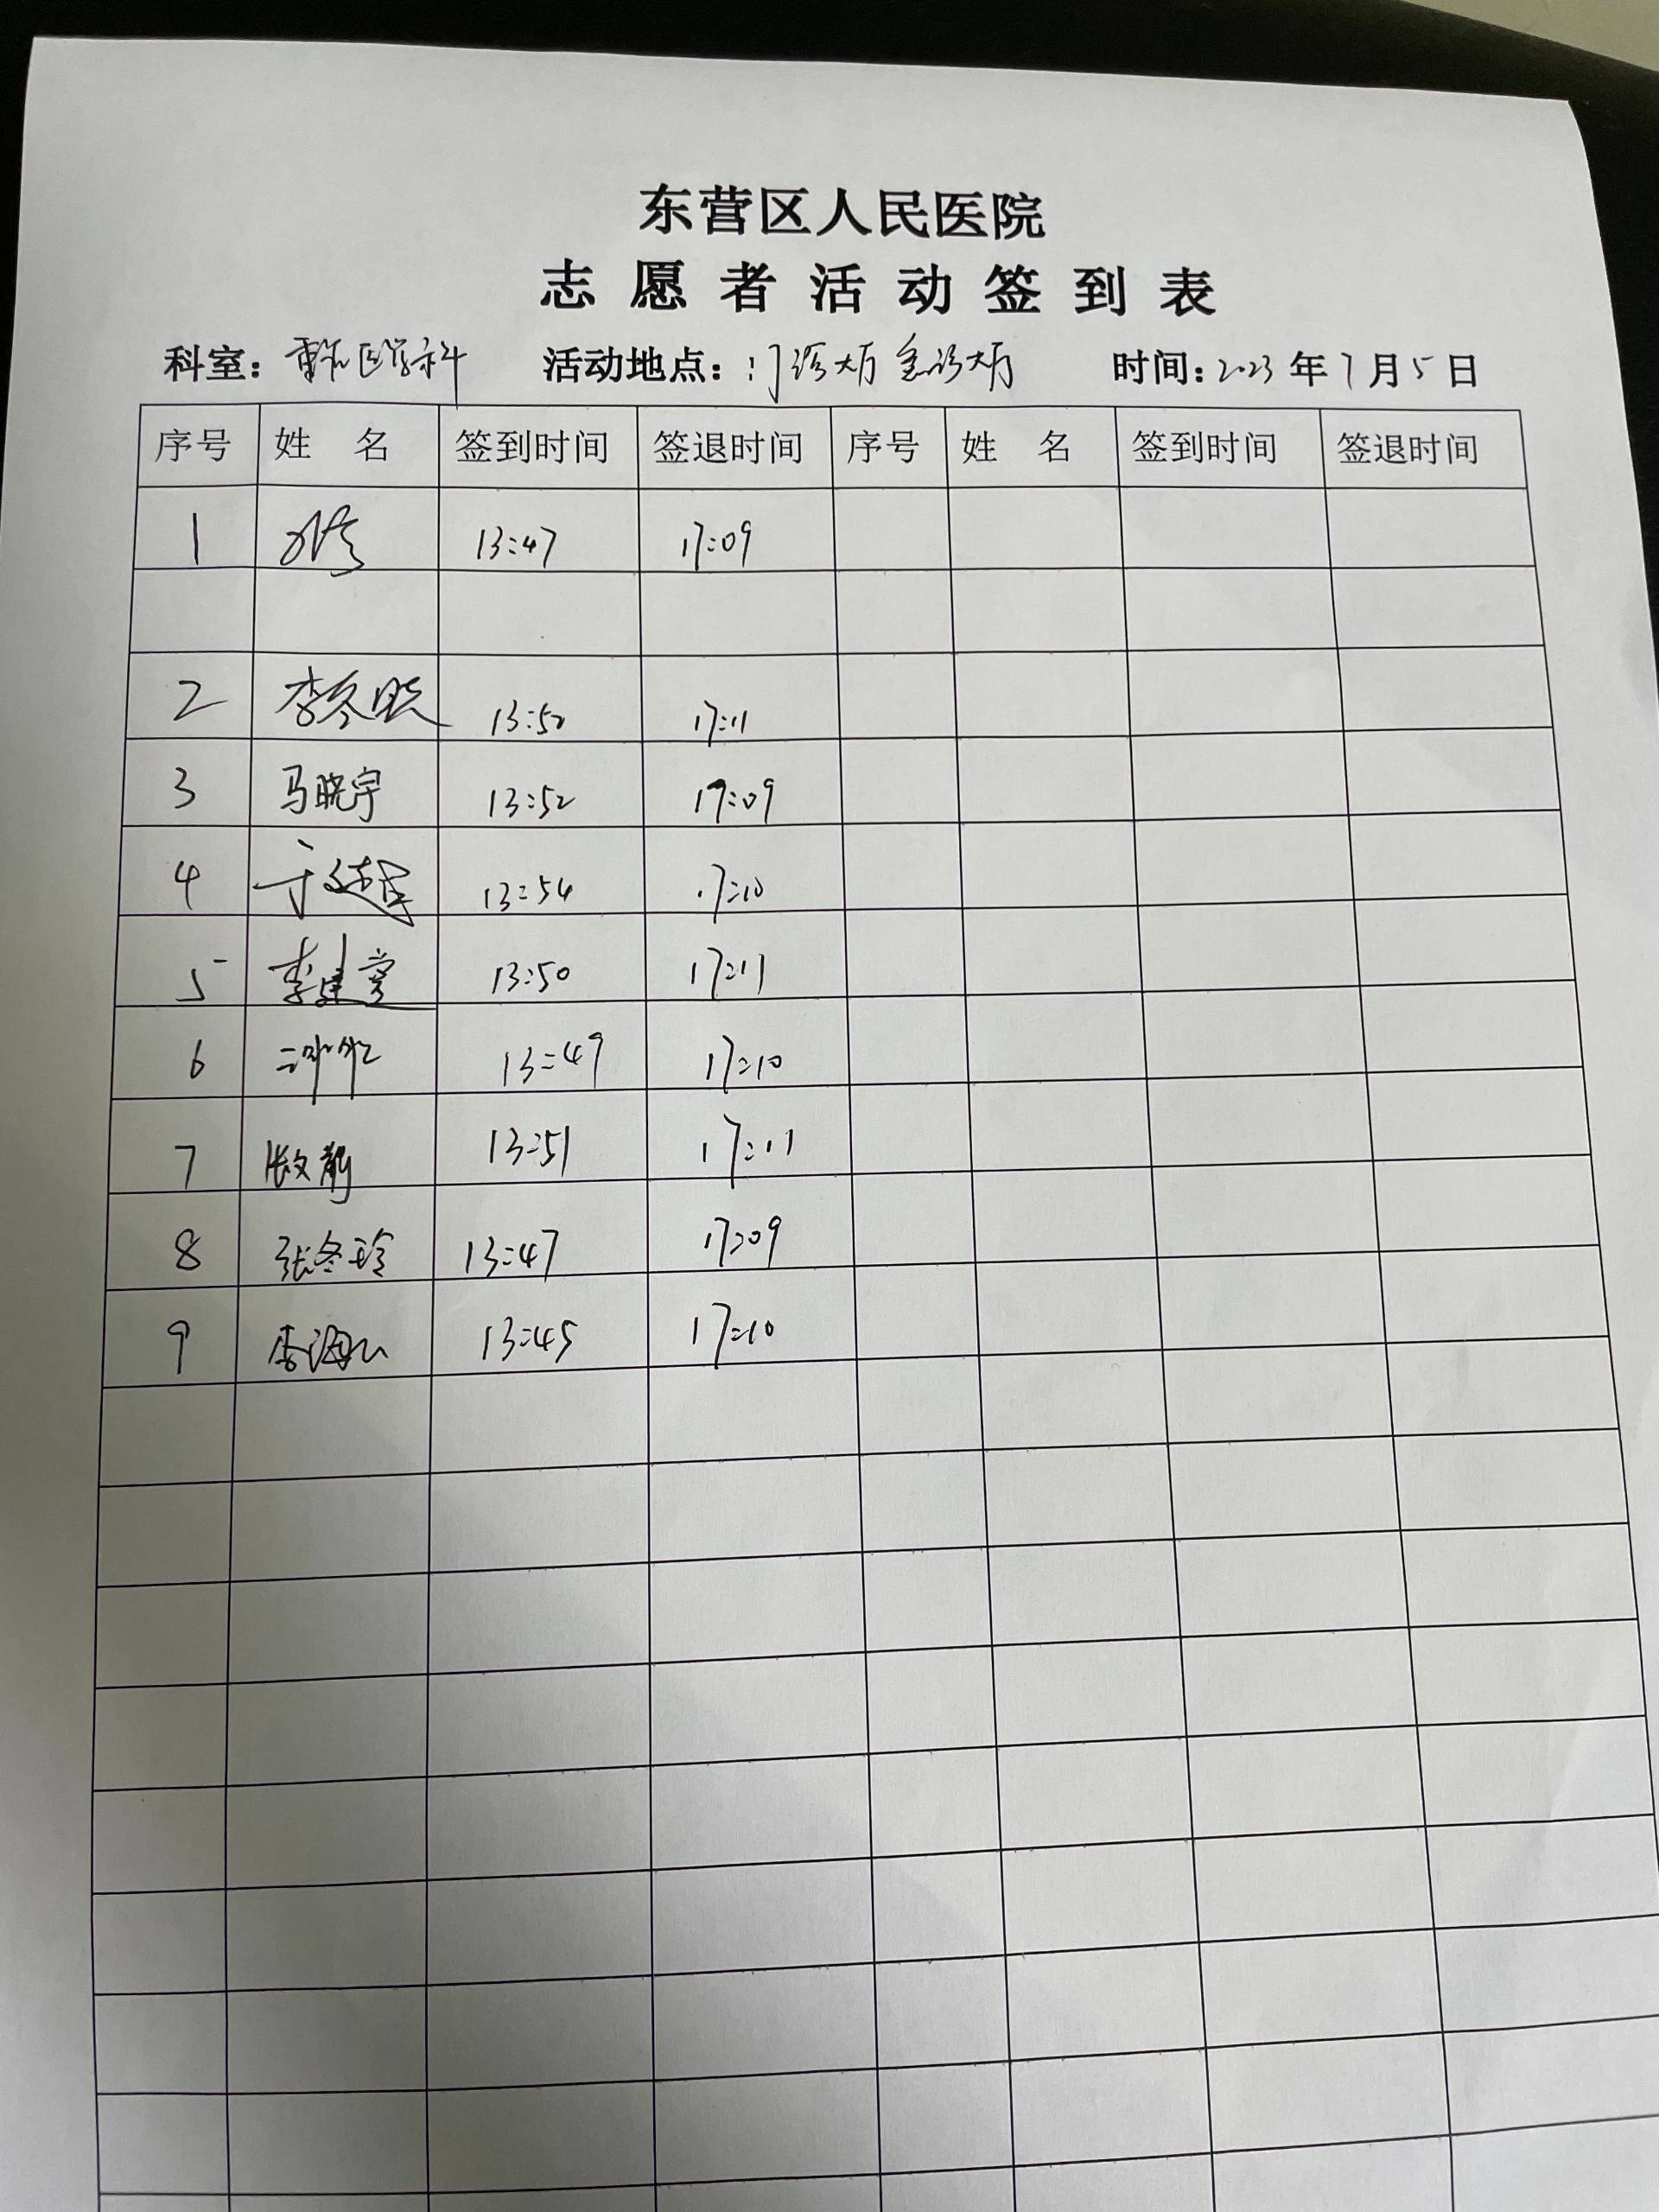 东营区人民医院
志愿者活动签到表
科室：重症医学科 活动地点：门诊大厅 急诊大厅 时间：2023年7月5日
序号 姓名 签到时间 签退时间 序号 姓名 签到时间 签退时间
1 13:47 17:09
2 李冬 13:52 17:11
3 马晓宇 13:52 17:09
4 于建民 13:54 17:10
5 李建 13:50 17:11
6 13:49 17:10
7 张文静 13:51 17:11
8 张冬玲 13:47 17:09
9 李海 13:45 17:10